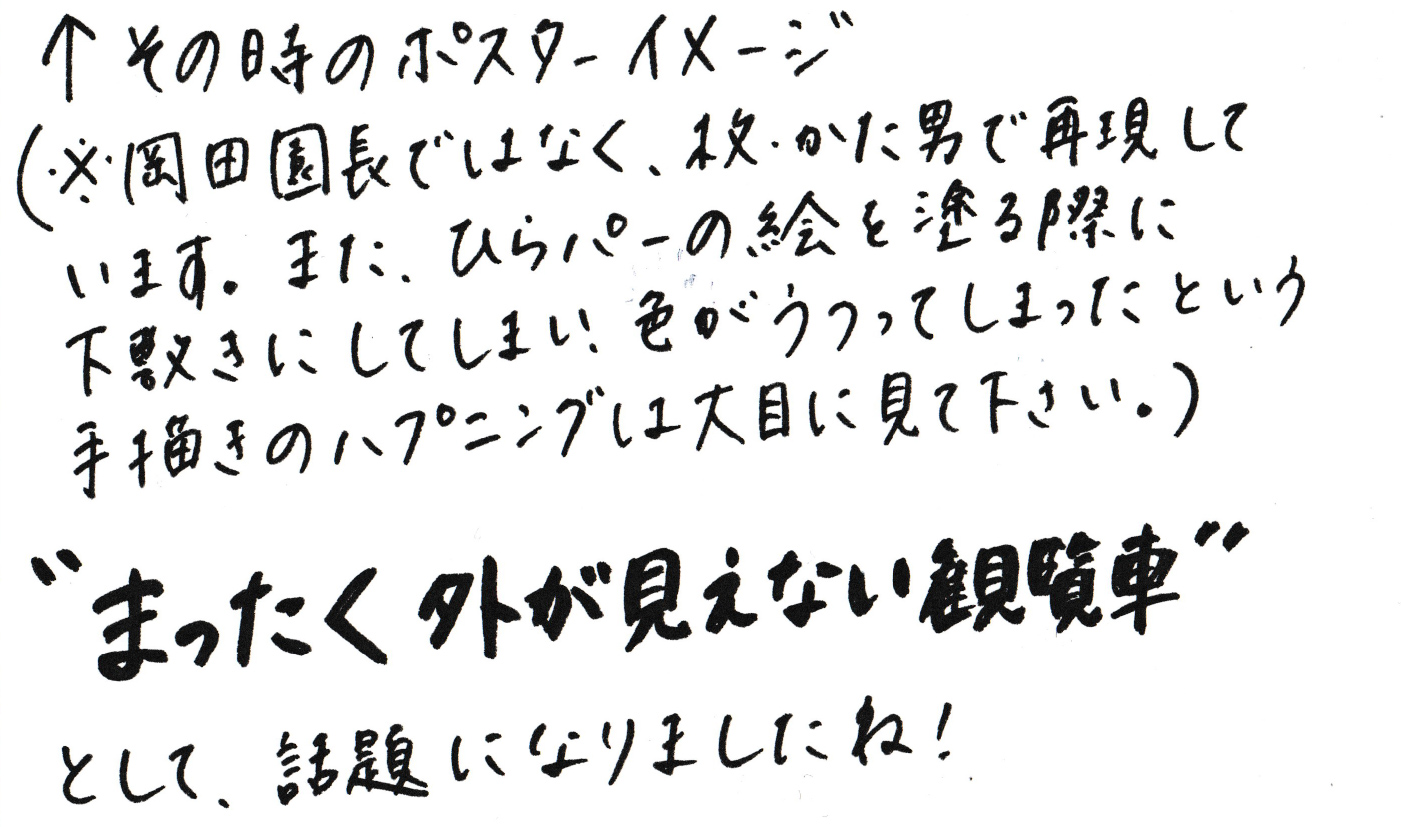 ↑その時のポスターイメージ
(※岡田園長ではなく、枚・かた男で再現して
います。また、ひらパーの絵を塗る際に
下敷きにしてしまい、色がうつってしまったという
手描きのハプニングは大目に見て下さい。)
"まったく外が見えない観覧車"
として、話題になりましたね!